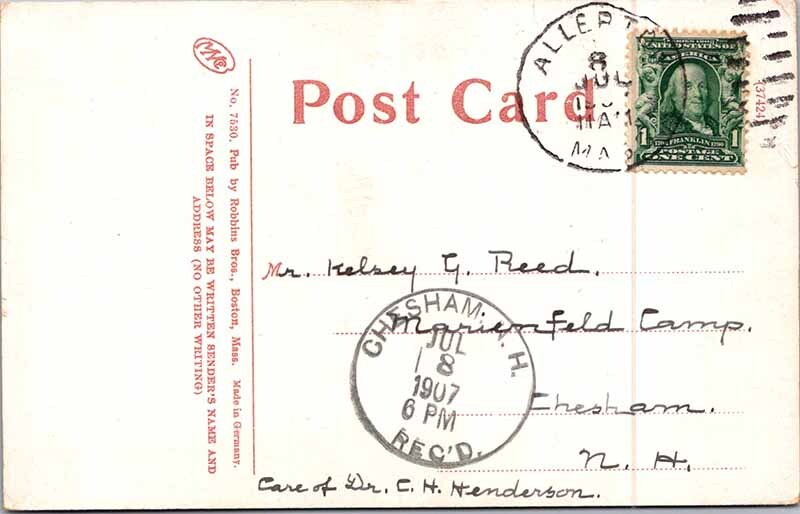 No. 7530. Pub by Robbins Bros., Boston, Mass. Made in Germany.
IN SPACE BELOW MAY BE WRITTEN SENDER'S NAME AND
ADDRESS (NO OTHER WRITING)
Post Card
JUL
UNITED STATES OF
AMERICA
1 FRANKLIN 1
POSTAGE
ONE CENT
37424
Mr. Kelsey G. Reed.
Marienfeld Camp.
Chesham.
N. H.
Care of Dr. C. H. Henderson.
CHESHAM, N. H.
JUL
18
1907
6 PM
REC'D.